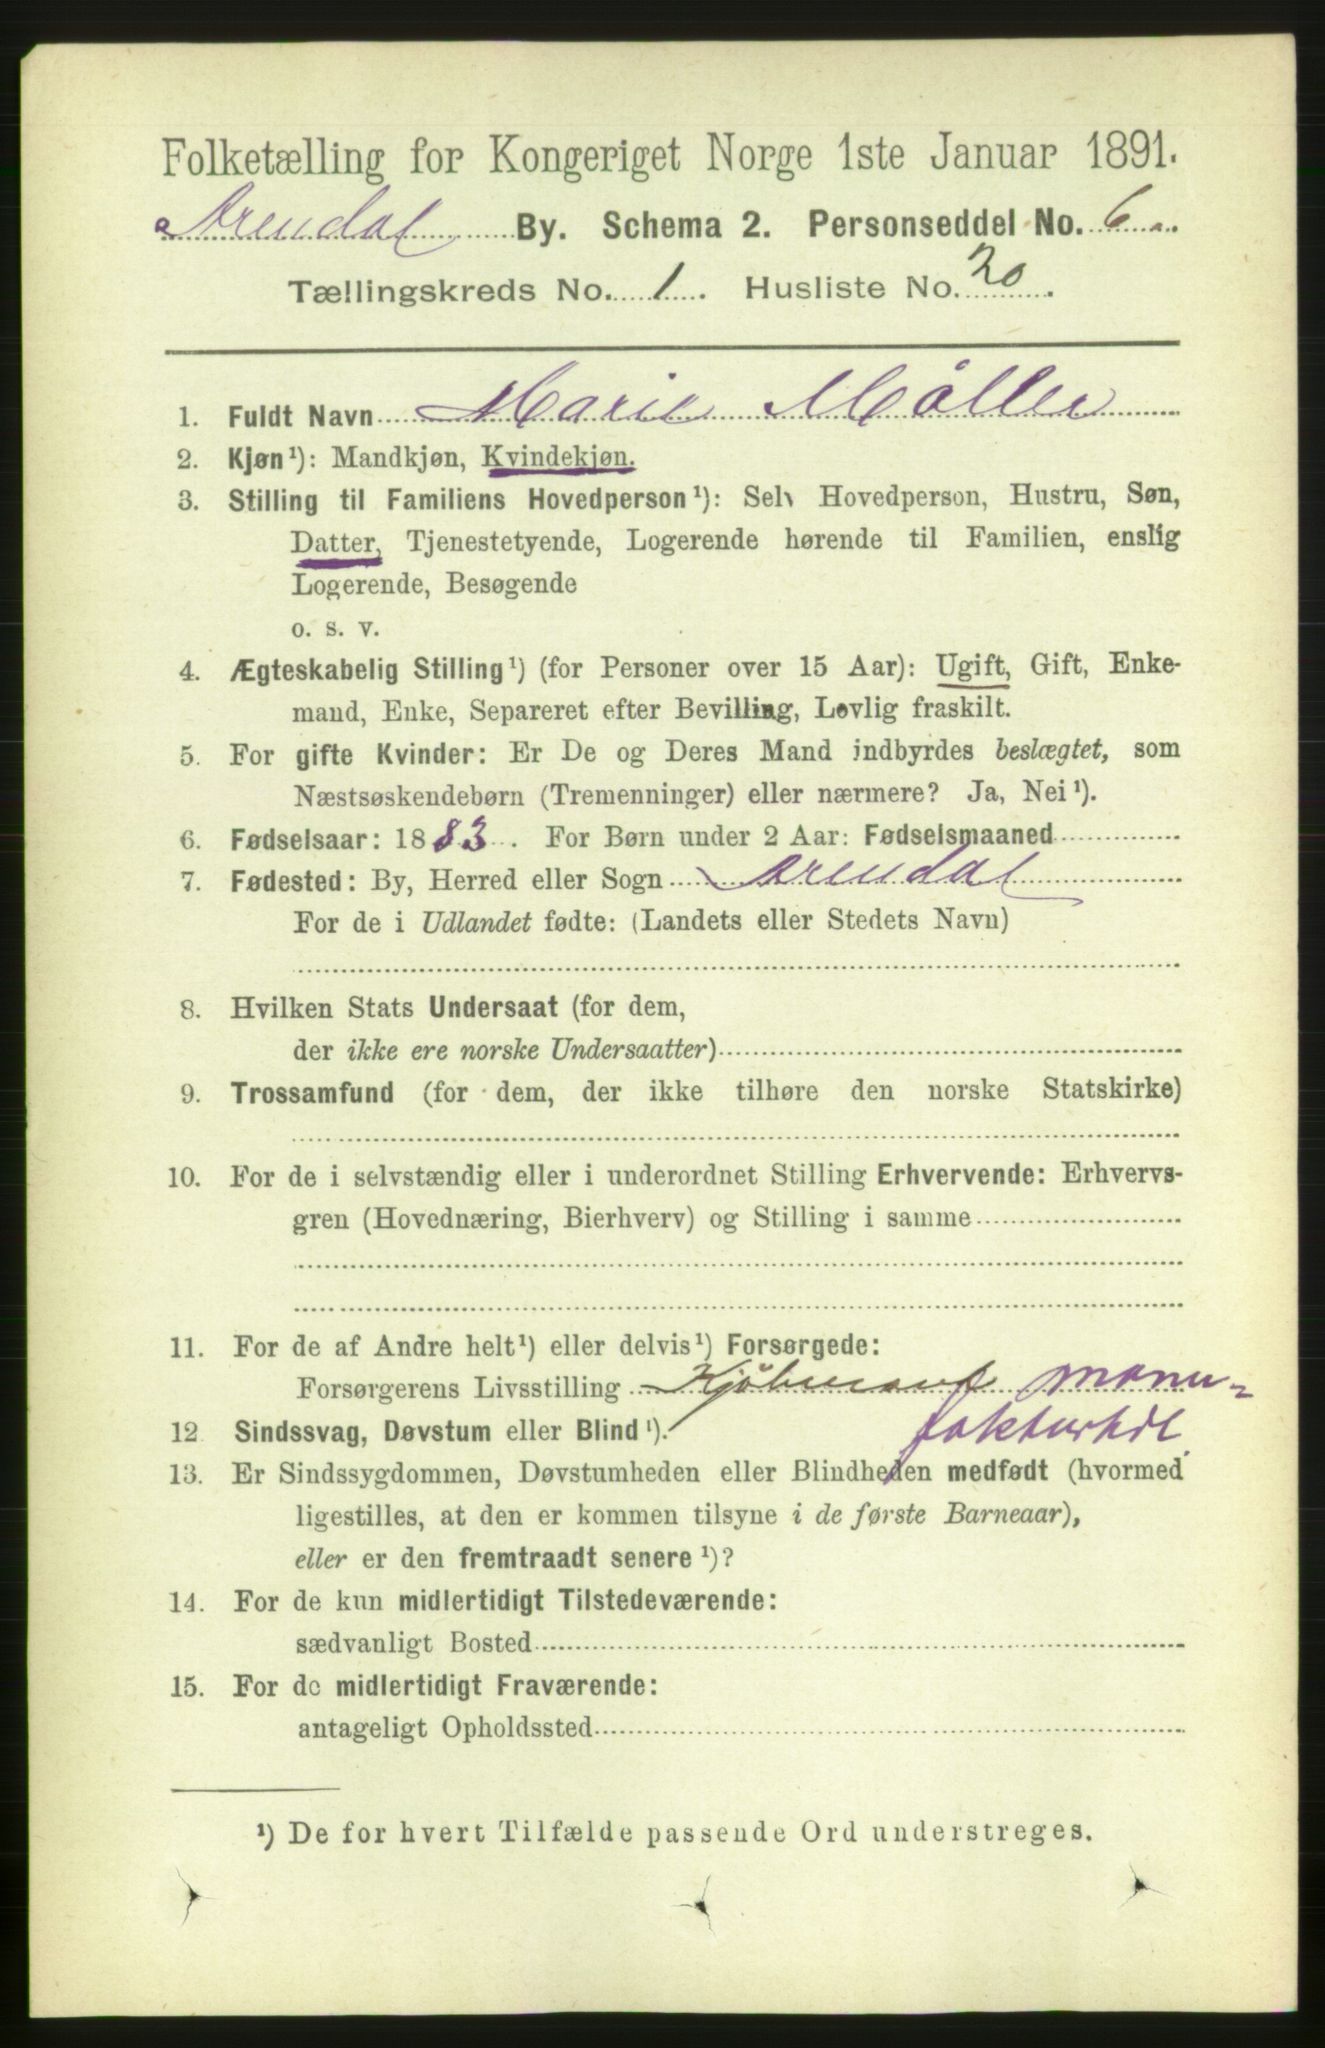 Folketælling for Kongeriget Norge 1ste Januar 1891.
Arendal By. Schema 2. Personseddel No. 6
Tællingskreds No. 1. Husliste No. 20.
1. Fuldt Navn Marie Møller
2. Kjøn¹): Mandkjøn, Kvindekjøn.
3. Stilling til Familiens Hovedperson¹): Selv Hovedperson, Hustru, Søn,
Datter, Tjenestetyende, Logerende hørende til Familien, enslig
Logerende, Besøgende
o. s. v.
4. Ægteskabelig Stilling¹) (for Personer over 15 Aar): Ugift, Gift, Enke-
mand, Enke, Separeret efter Bevilling, Lovlig fraskilt.
5. For gifte Kvinder: Er De og Deres Mand indbyrdes beslægtet, som
Næstsøskendebørn (Tremenninger) eller nærmere? Ja, Nei¹).
6. Fødselsaar: 1883. For Børn under 2 Aar: Fødselsmaaned
7. Fødested: By, Herred eller Sogn Arendal
For de i Udlandet fødte: (Landets eller Stedets Navn)
8. Hvilken Stats Undersaat (for dem,
der ikke ere norske Undersaatter)
9. Trossamfund (for dem, der ikke tilhøre den norske Statskirke)
10. For de i selvstændig eller i underordnet Stilling Erhvervende: Erhvervs-
gren (Hovednæring, Bierhverv) og Stilling i samme
11. For de af Andre helt¹) eller delvis¹) Forsørgede:
Forsørgerens Livsstilling Kjöbmand manu-
fakturhdl.
12. Sindssvag, Døvstum eller Blind¹).
13. Er Sindssygdommen, Døvstumheden eller Blindheden medfødt (hvormed
ligestilles, at den er kommen tilsyne i de første Barneaar),
eller er den fremtraadt senere¹)?
14. For de kun midlertidigt Tilstedeværende:
sædvanligt Bosted
15. For de midlertidigt Fraværende:
antageligt Opholdssted
¹) De for hvert Tilfælde passende Ord understreges.